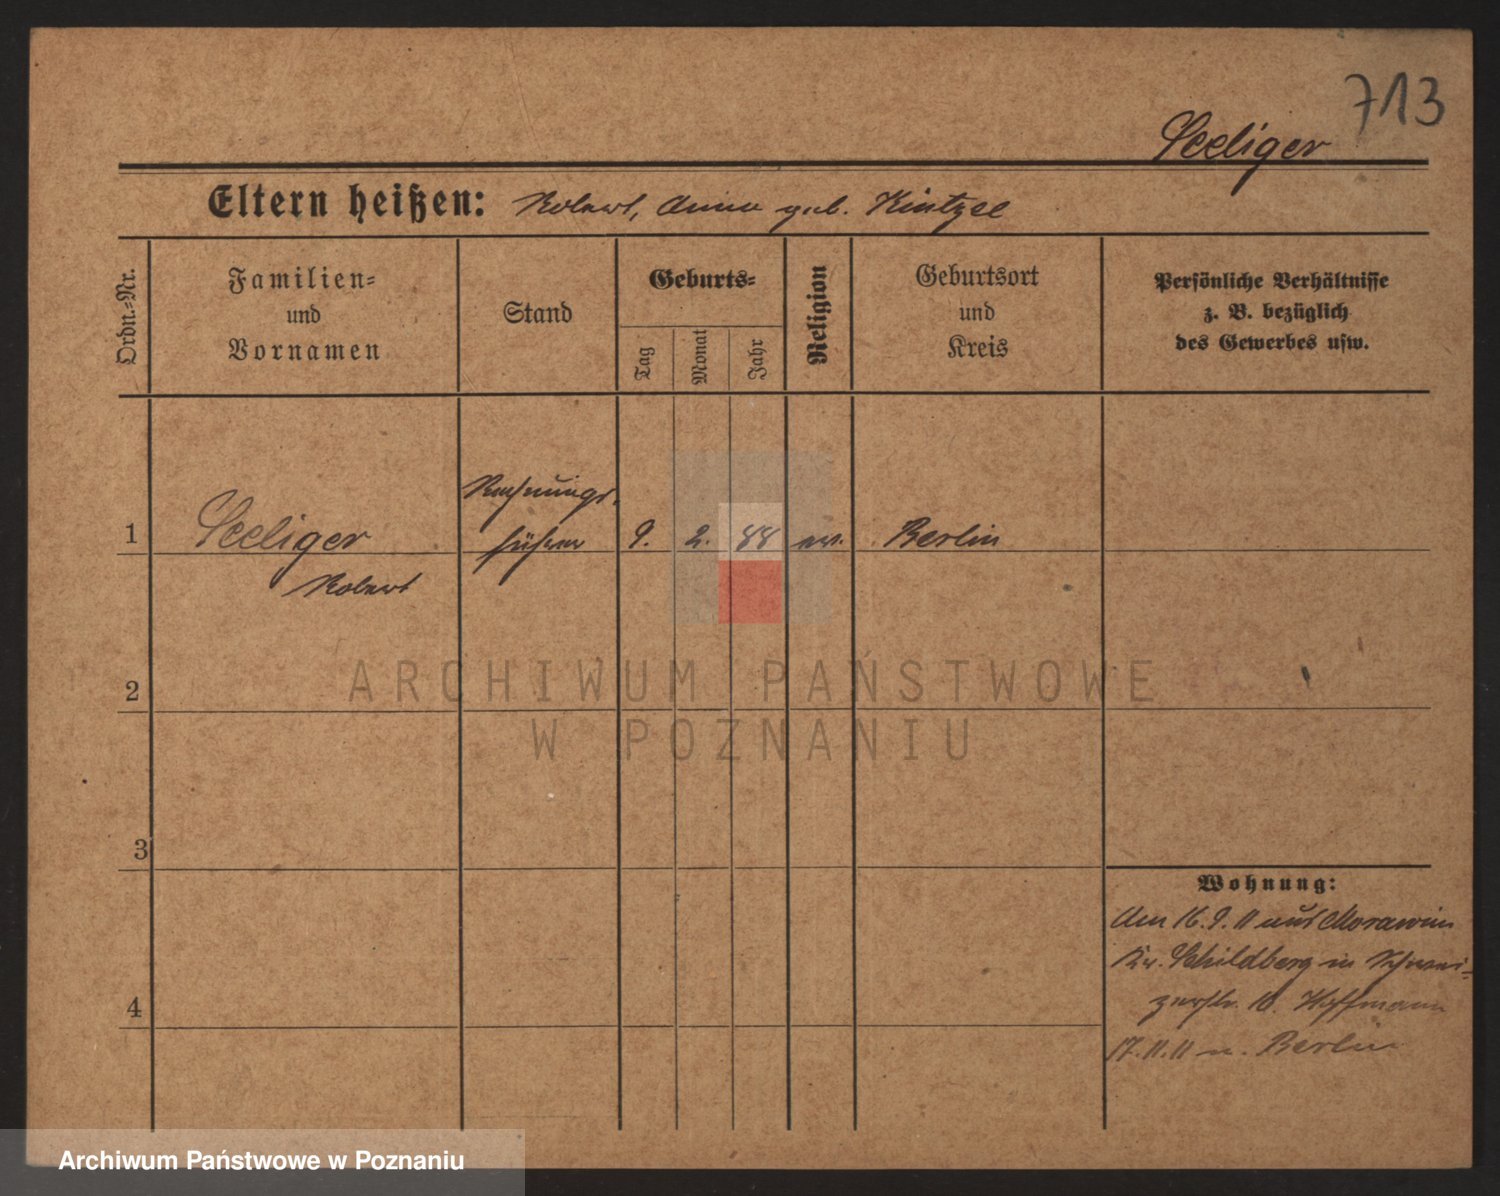 713
Seeliger
Eltern heißen: Robert, Anna geb. Kintzel
Ordn.-Nr.
Familien-
und
Vornamen
Stand
Geburts-
Tag
Monat
Jahr
Religion
Geburtsort
und
Kreis
Persönliche Verhältnisse
z. B. bezüglich
des Gewerbes usw.
Rechnungs-
1 Seeliger führer 9. 2. 88 ev. Berlin
Robert
2
3
4
Wohnung:
Am 16.9.11 aus Morawin
Kr. Schildberg in Schwei-
zerstr. 10. Hoffmann
17.11.11 n. Berlin
ARCHIWUM PAŃSTWOWE
W POZNANIU
Archiwum Państwowe w Poznaniu